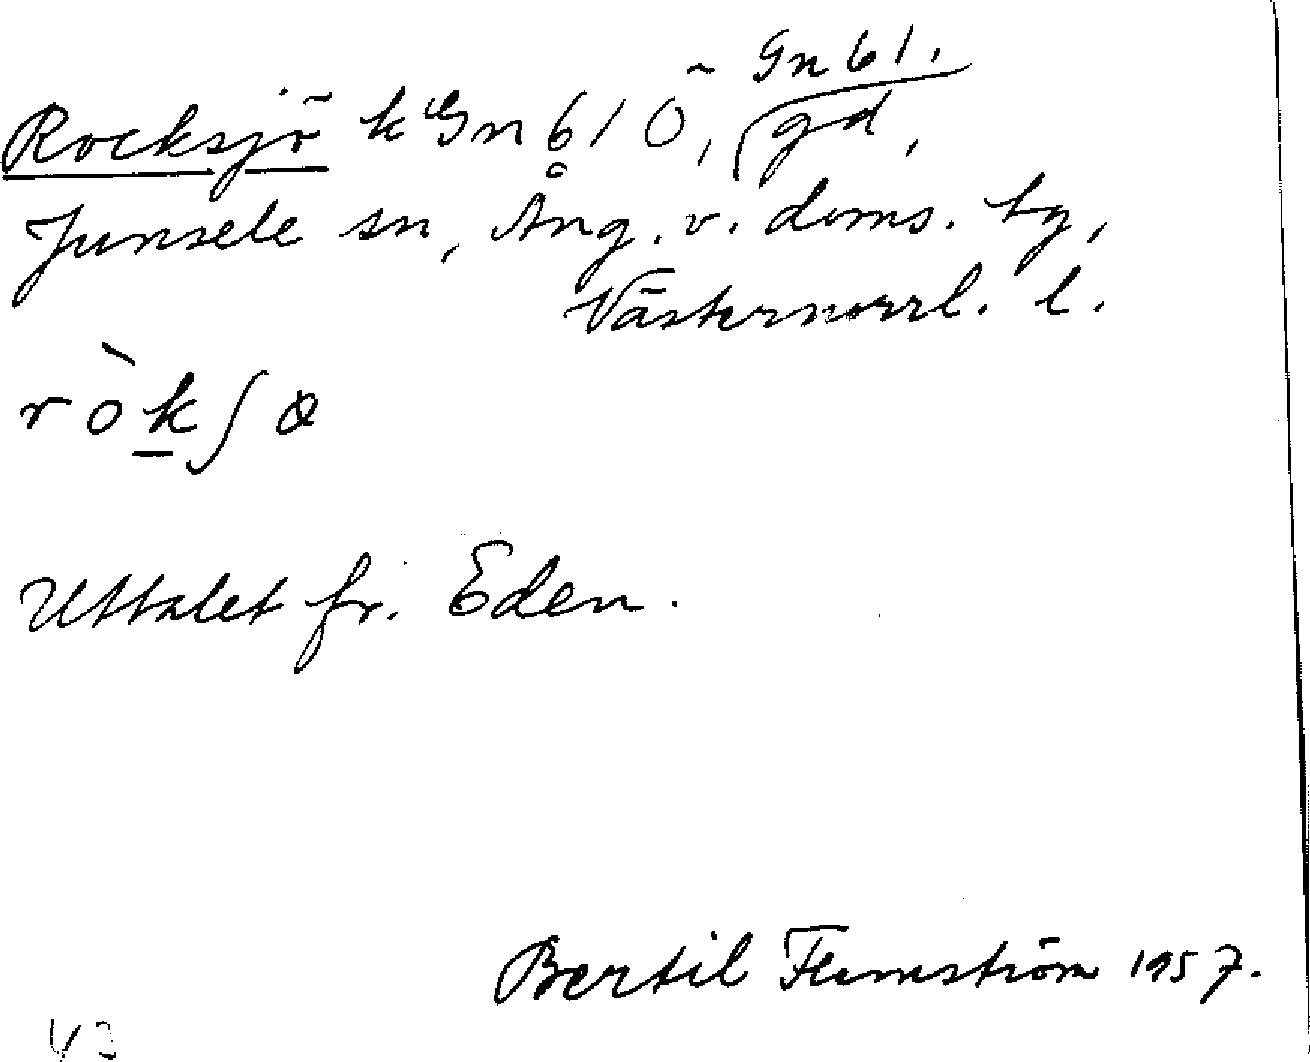 Gn 61.
Rocksjö k Gn 61 Ö, gd,
Junsele sn, Ång. v. doms. hg,
Västernorrl. l.
ròkʃø
Uttalet fr. Eden.
Bertil Flemström 1957.